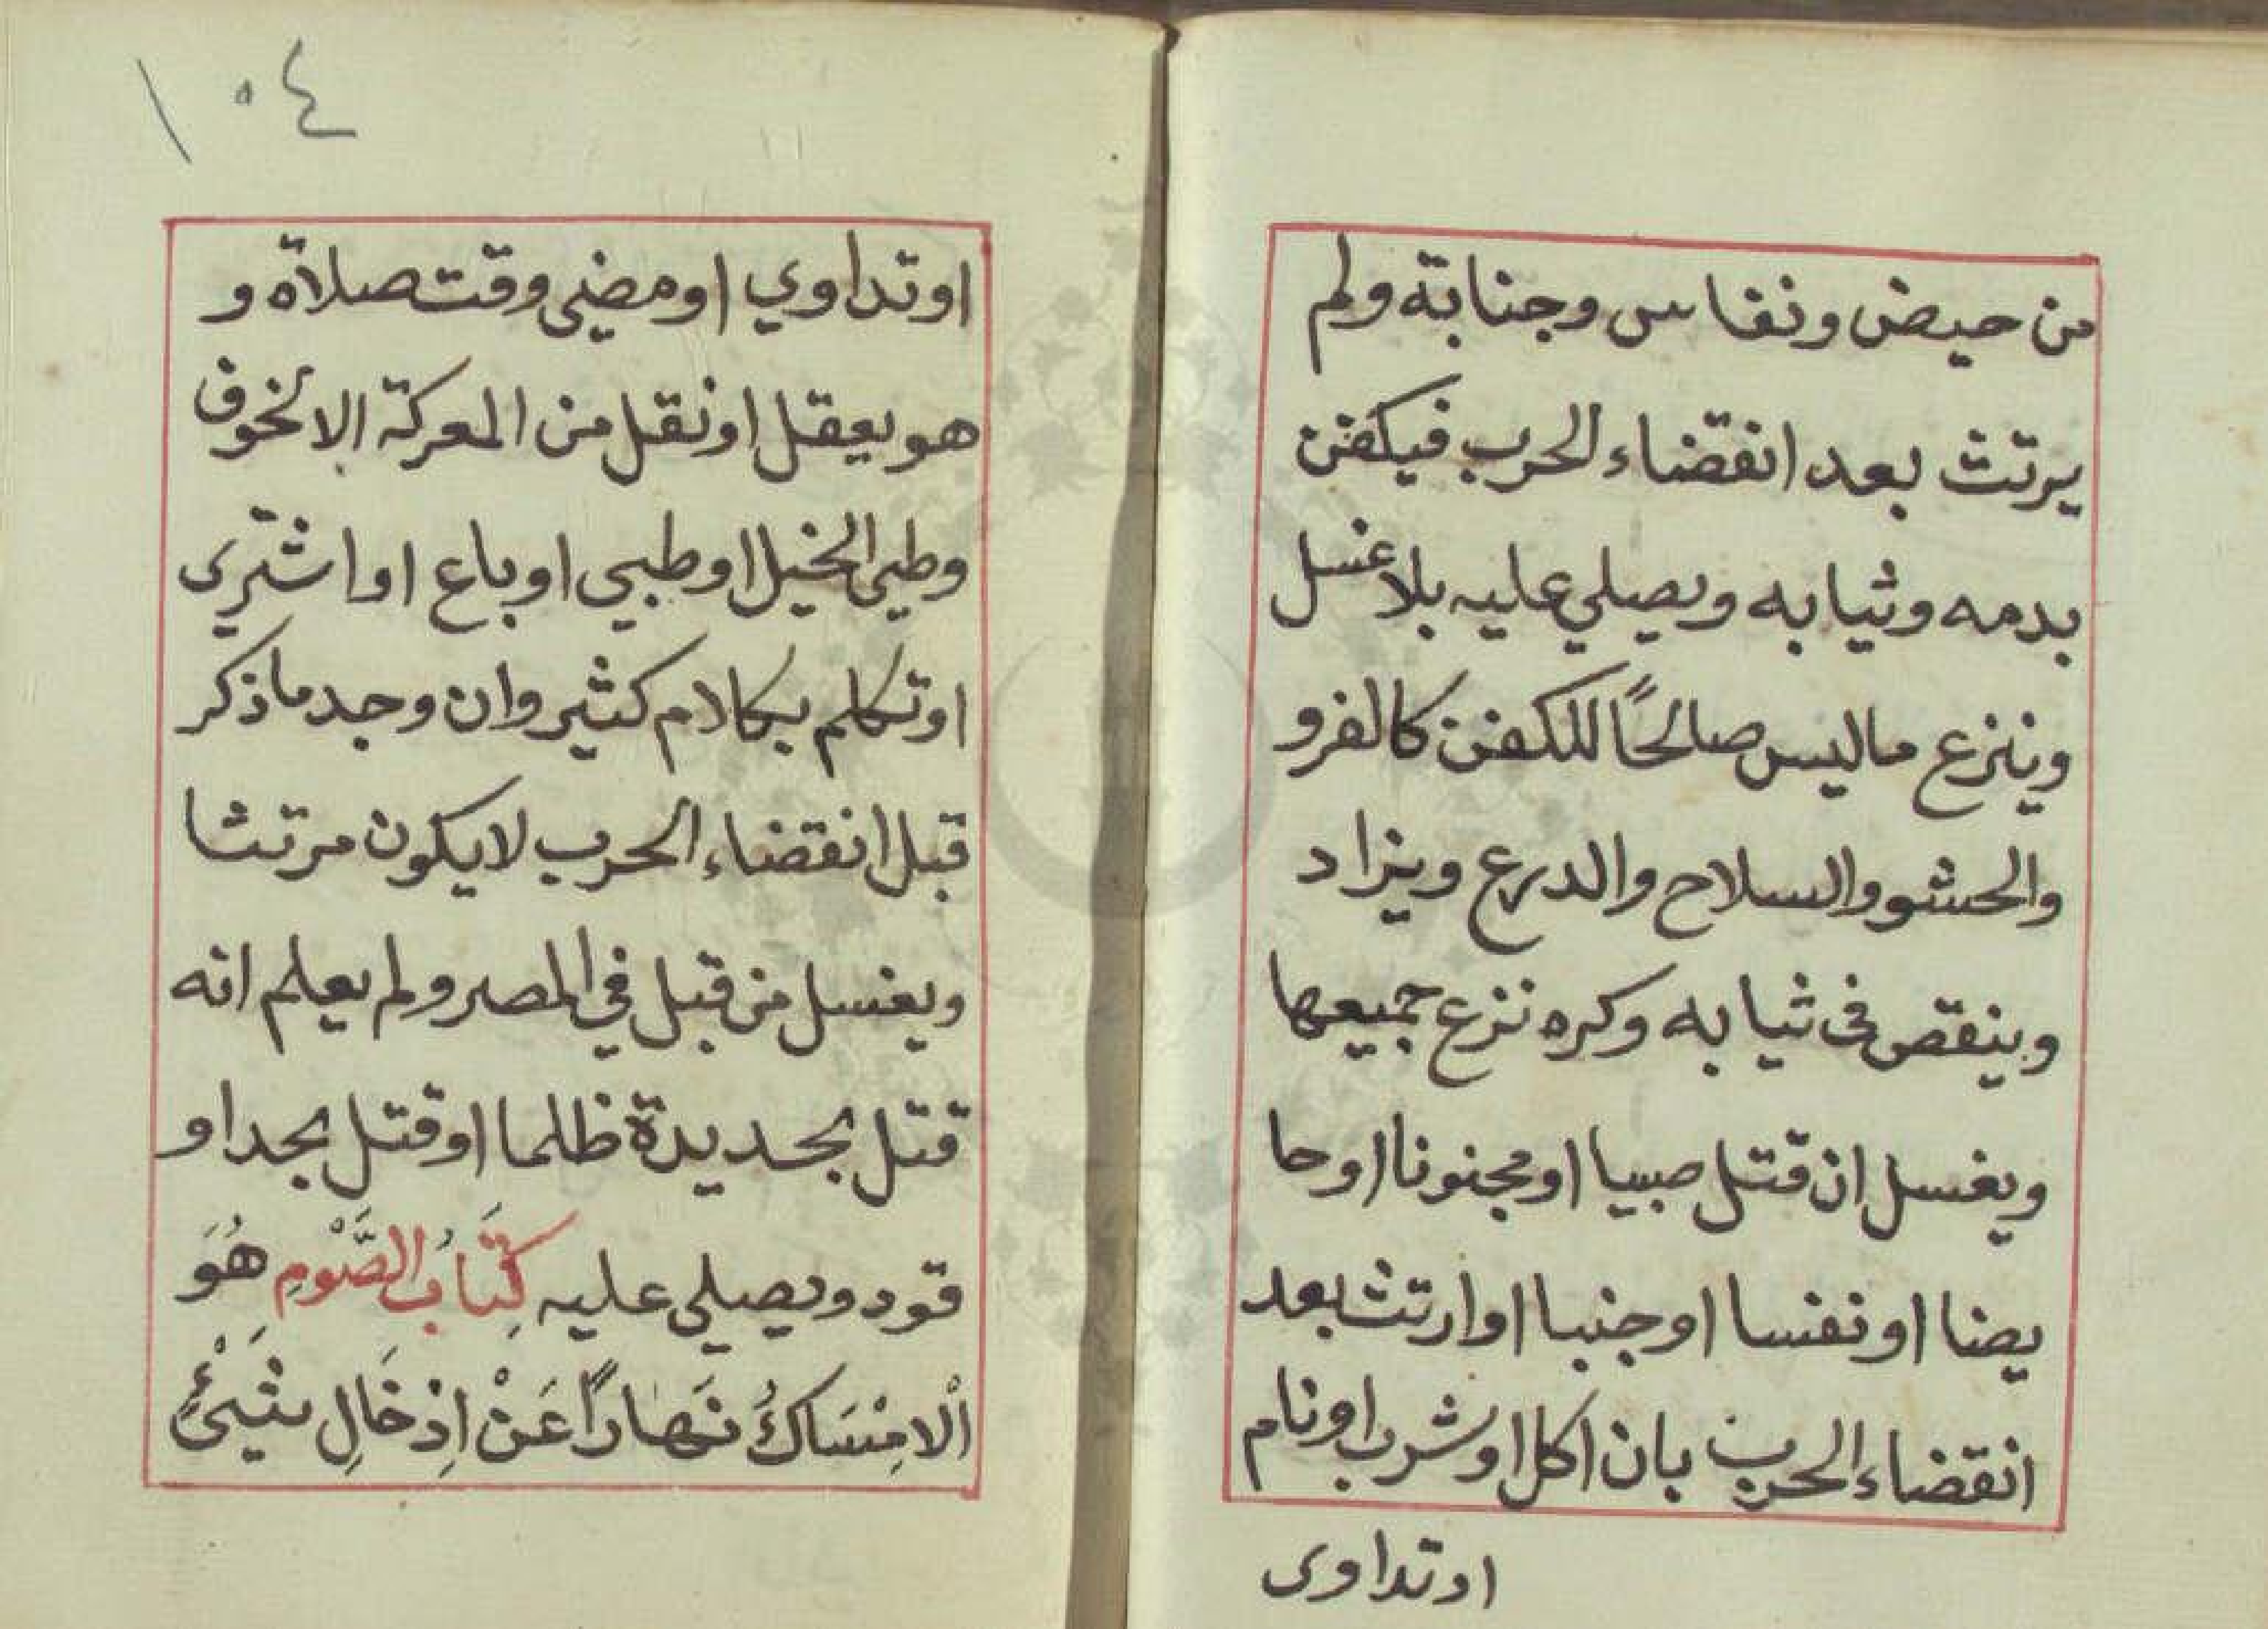 من حيض ونفاس وجنابة ولم
يرتث بعد انقضاء الحرب فيكفن
بدمه وثيابه ويصلي عليه بلا غسل
وينزع ما ليس صالحًا للكفن كالفرو
والحشو والسلاح والدرع ويزاد
وينقص فى ثيابه وكره نزع جميعها
ويغسل ان قتل صبيا او مجنونا او حا
يضا او نفسا او جنبا او ارتث بعد
انقضاء الحرب بان اكل او شرب او نام
او تداوى
١٠٤
او تداوي او مضى وقت صلاة و
هو يعقل او نقل من المعركة الا لخوف
وطىء الخيل او طبي او باع او اشترى
او تكلم بكلام كثير وان وجد ما ذكر
قبل انقضاء الحرب لا يكون مرتثا
ويغسل من قبل في المصر ولم يعلم انه
قتل بحديدة ظلما او قتل بحد او
قود ويصلى عليه كِتَابُ الصَّوْمِ هُوَ
اْلامِسَاكُ نَهَارًا عَنْ اِدْخَالِ شَيْئٍ